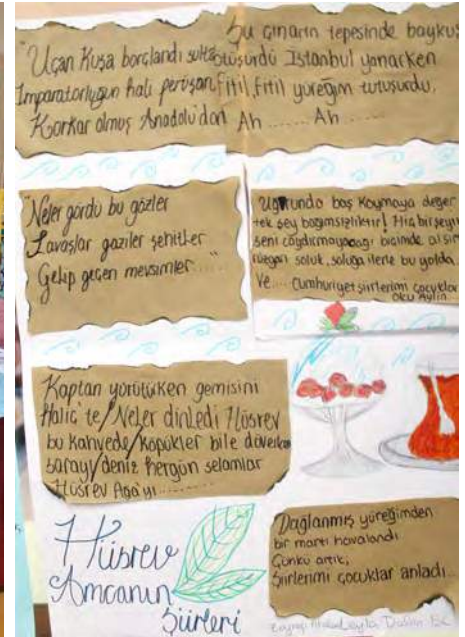 "Uçan Kuşa borçlandı sultan
İmparatorluğun hali perişan
Korkar olmuş Anadolu'dan
Şu çınarın tepesinde baykuş
ötüşürdü İstanbul yanarken
Fitil, fitil yüreğim tutuşurdu,
Ah ....... Ah .....
"Neler gördü bu gözler
Savaşlar gaziler şehitler
Gelip geçen mevsimler....."
Uğrunda baş koymaya değer
tek şey bağımsızlıktır! Hiç bir şeyin
seni caydırmayacağı biçimde al sim
rüzgarı soluk, soluğa ilerle bu yolda.
Ve.... Cumhuriyet şiirlerimi çocuklar
Oku Aylin
Kaptan yürütürken gemisini
Haliç'te/Neler dinledi Hüsrev
bu Kahvede/Köpükler bile döverken
sarayı/deniz hergün selamlar
Hüsrev Ağa'yı..........
Hüsrev
Amcanın
Şiirleri
"Dağlanmış yüreğimden
bir martı havalandı
Çünkü artık;
Şiirlerimi çocuklar anladı...